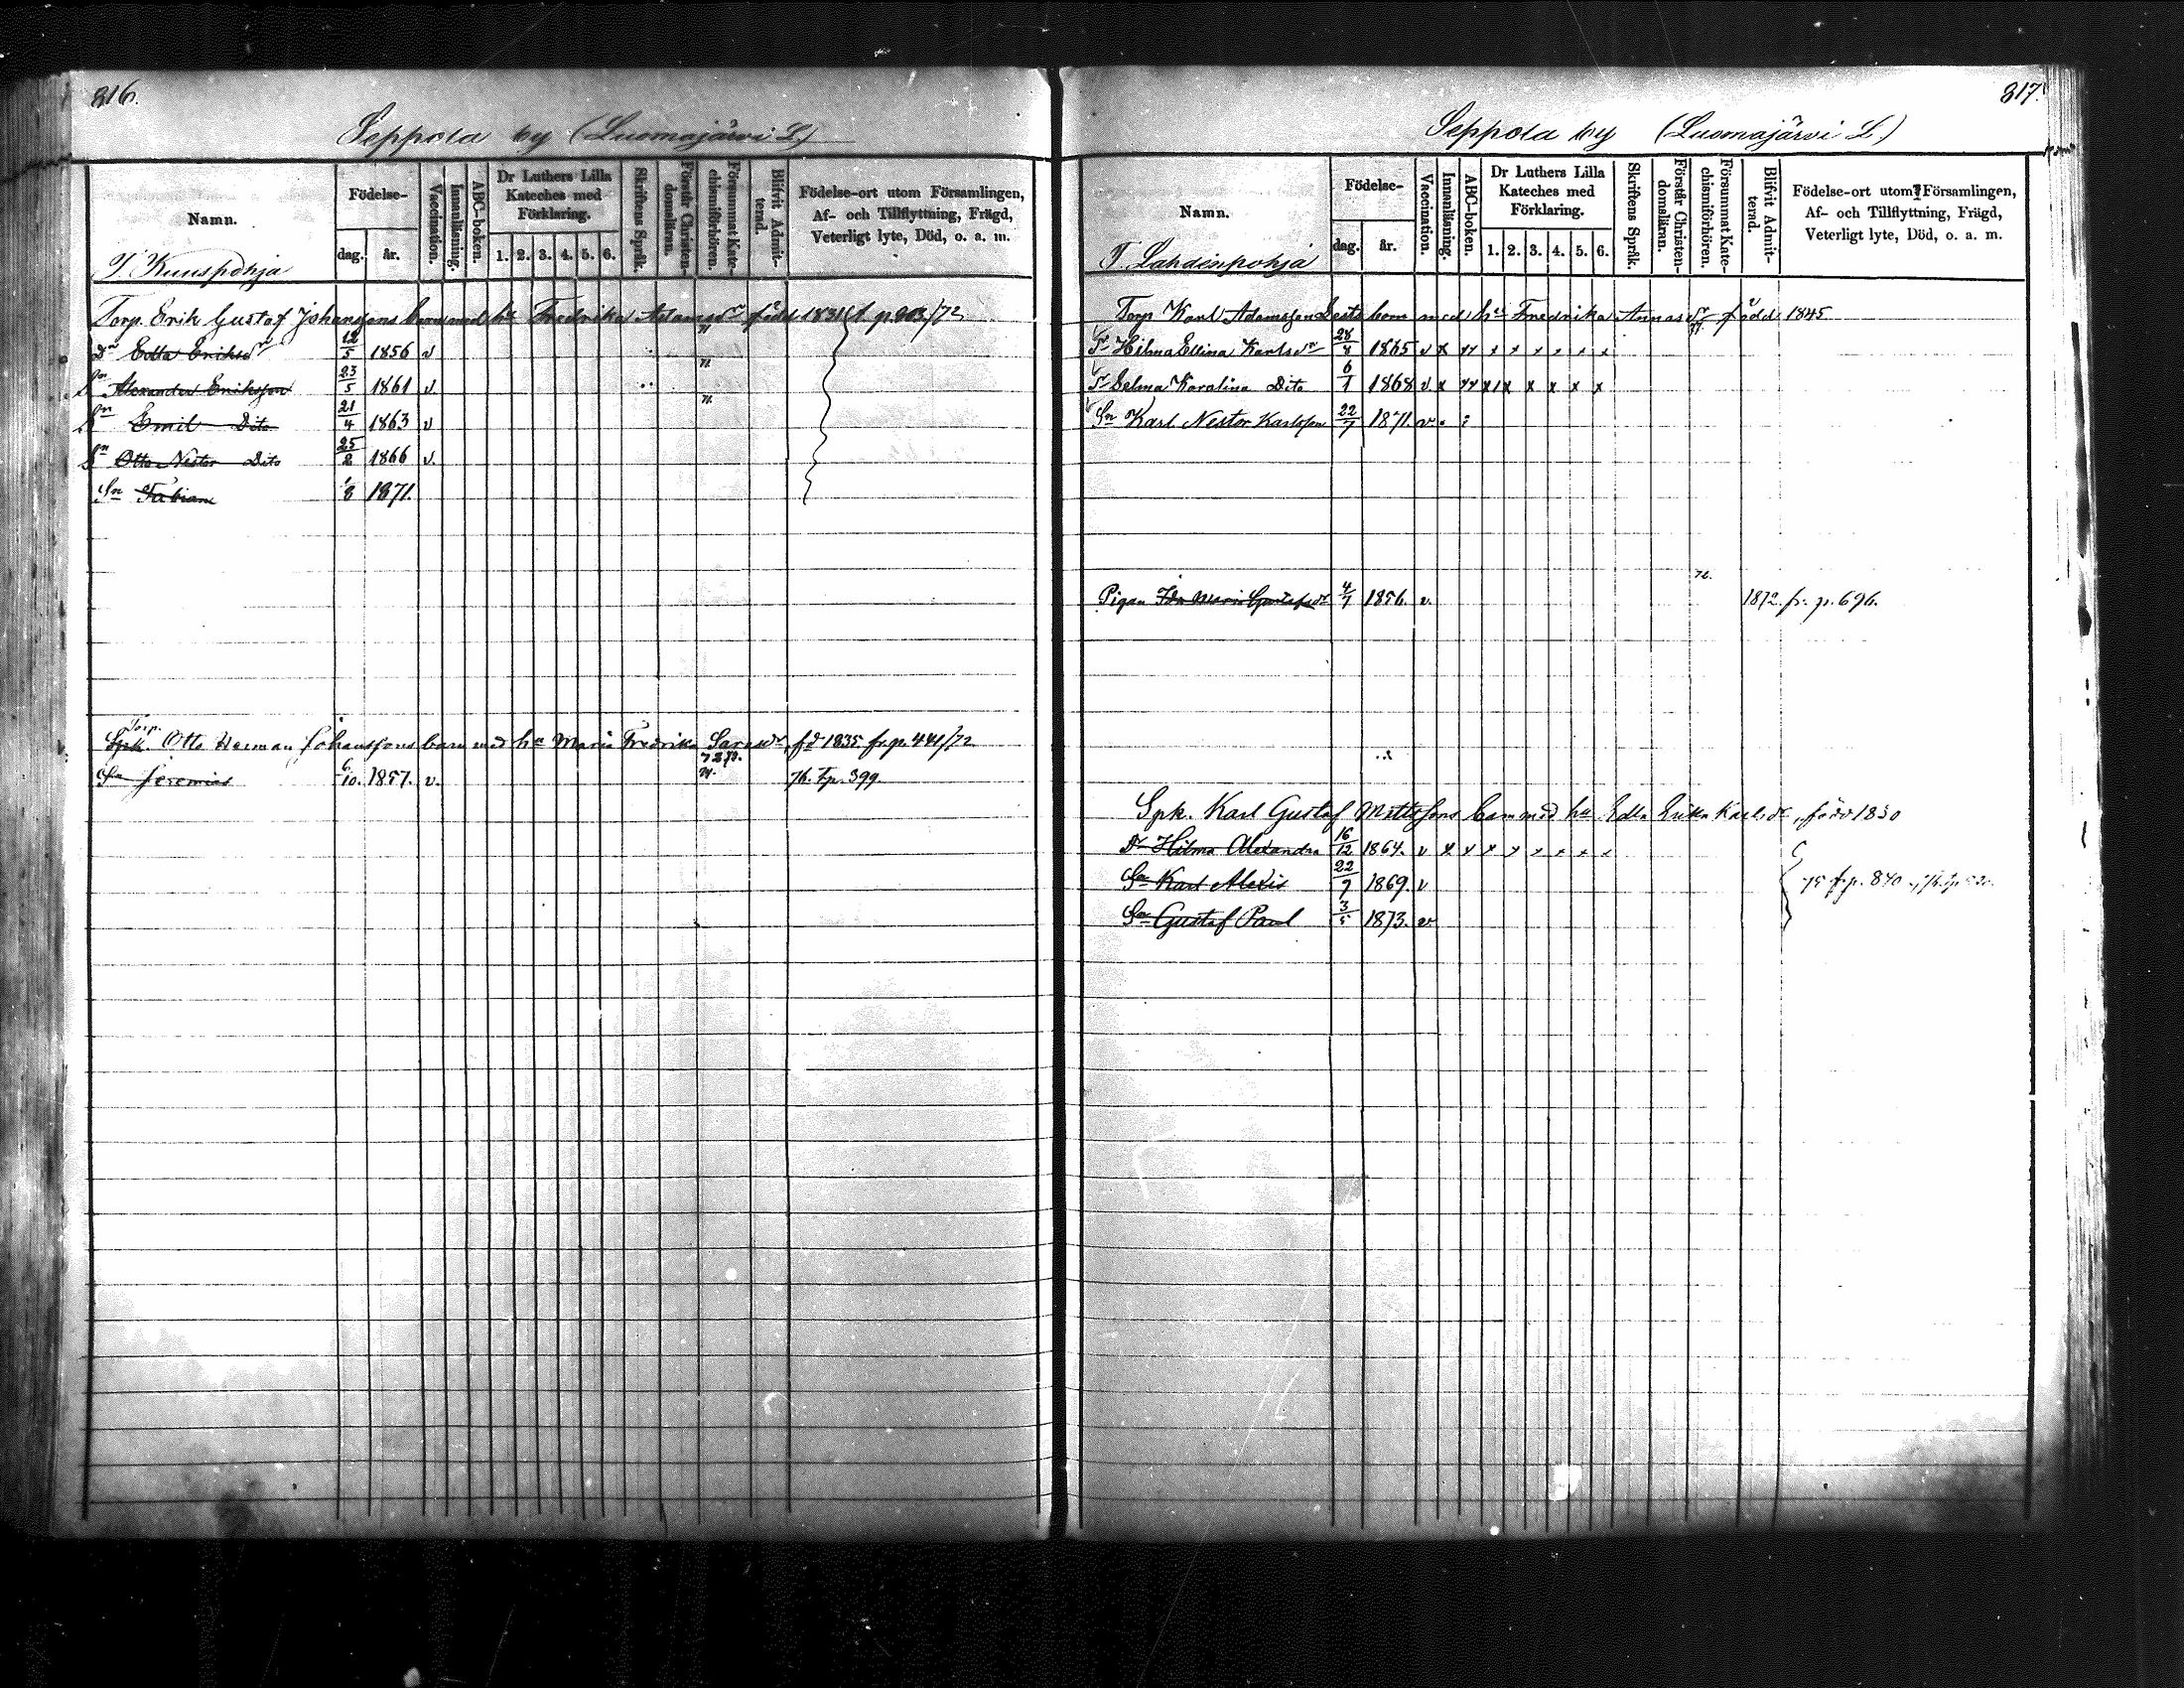 816.
Seppola by (Luomajärvi L.)
Namn.
Födelse-
dag.
år.
Vaccination.
Innanläsning.
ABC-boken.
Dr Luthers Lilla
Kateches med
Förklaring.
1. 2. 3. 4. 5. 6.
Skriftens Språk.
Förstår Christen-
domsläran.
Försummat Kate-
chismiförhören.
Blifvit Admit-
terad.
Födelse-ort utom Församlingen,
Af- och Tillflyttning, Frägd,
Veterligt lyte, Död, o. a. m.
T. Kuuspohja
Torp. Erik Gustaf Johanssons barn med hu Fredrika Adamsdr född 1831 f. p. 903/72
Dr Edla Eriksdr 12/5 1856 v n.
Sn Alexander Eriksson 23/5 1861 v. n.
Sn Emil Dito 21/4 1863 v n.
Sn Otto Nestor Dito 25/2 1866 v.
Sn Fabian 1/8 1871.
Torp.
Spk. Otto Herman Johanssons barn med hu Maria Fredrika Saresdr, fd 1835 fr. p. 441/72
Sn Jeremias 6/10. 1857. v. n. 76. t. p. 399
817.
Seppola by (Luomajärvi L.)
Namn.
Födelse-
dag.
år.
Vaccination.
Innanläsning.
ABC-boken.
Dr Luthers Lilla
Kateches med
Förklaring.
1. 2. 3. 4. 5. 6.
Skriftens Språk.
Förstår Christen-
domsläran.
Försummat Kate-
chismiförhören.
Blifvit Admit-
terad.
Födelse-ort utom Församlingen,
Af- och Tillflyttning, Frägd,
Veterligt lyte, Död, o. a. m.
T. Lahdenpohja
Torp Karl Adamsson barn med hu Fredrika Annasdr född 1845
Dr Hilma Ellina Karlsdr 28/8 1865 v x xx x x x x x x
Dr Selma Karolina Dito 6/1 1868 v x xx x x x x x x
Sn Karl Nestor Karlsson 22/7 1871. v
Pigan Ida Maria Gustafsdr 4/7 1856. v. n. 1872. fr. p. 696.
Spk. Karl Gustaf Mattssons barn med hu Edla Erika Karlsdr, född 1830
Dr Hilma Alexandra 16/12 1864. v x x x x x x x x
Sn Karl Alexis 22/7 1869. v 75 fr p. 870
Sn Gustaf Paul 3/5 1873. v